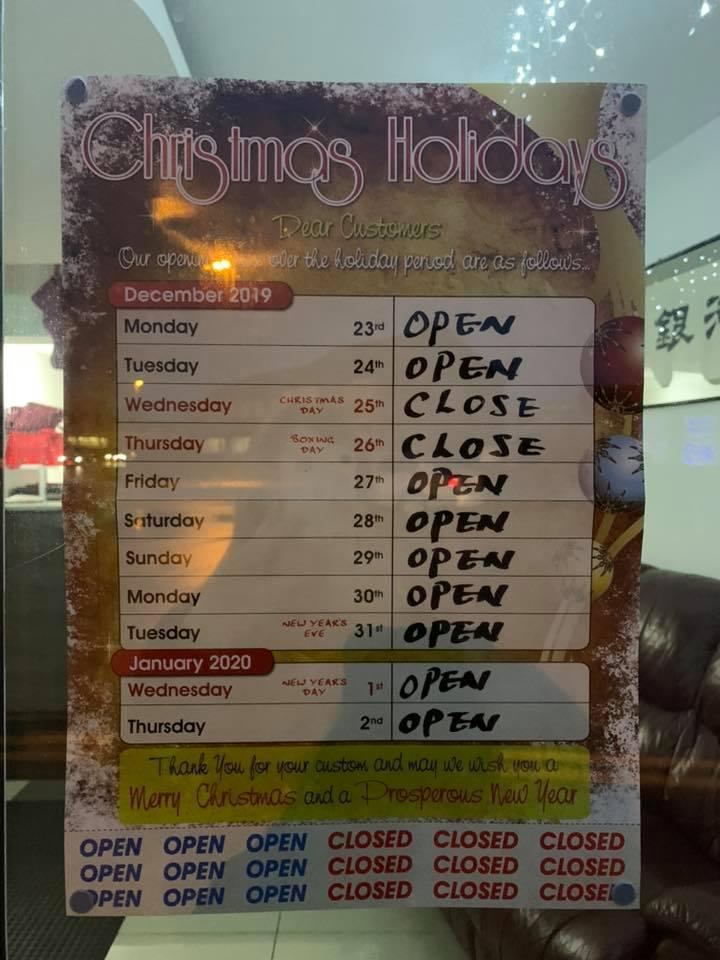 Christmas Holidays
Dear Customers
Our opening over the holiday period are as follows...
December 2019
Monday 23rd OPEN
Tuesday 24th OPEN
Wednesday CHRISTMAS DAY 25th CLOSE
Thursday BOXING DAY 26th CLOSE
Friday 27th OPEN
Saturday 28th OPEN
Sunday 29th OPEN
Monday 30th OPEN
Tuesday NEW YEAR'S EVE 31st OPEN
January 2020
Wednesday NEW YEAR'S DAY 1st OPEN
Thursday 2nd OPEN
Thank You for your custom and may we wish you a
Merry Christmas and a Prosperous New Year
OPEN OPEN OPEN CLOSED CLOSED CLOSED
OPEN OPEN OPEN CLOSED CLOSED CLOSED
OPEN OPEN OPEN CLOSED CLOSED CLOSED
銀